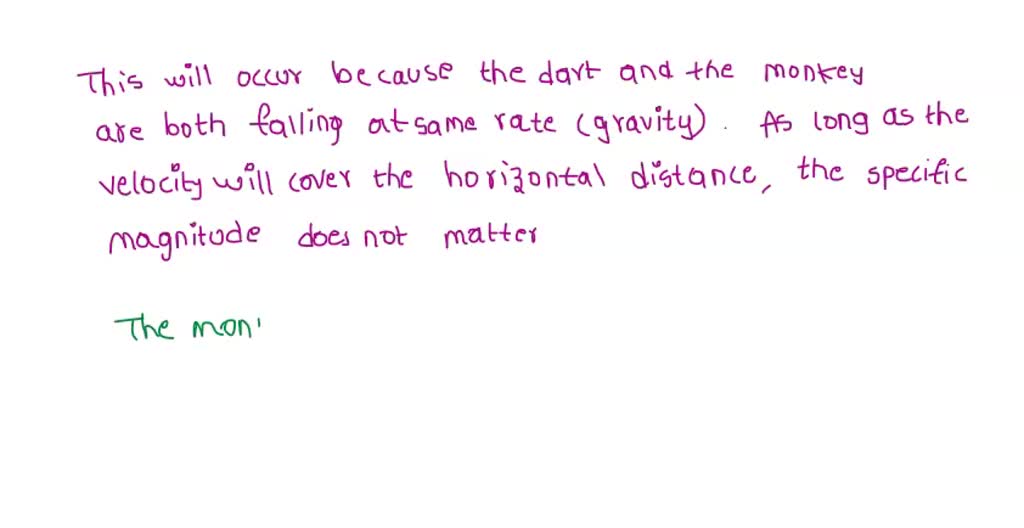 This will occur because the dart and the monkey
are both falling at same rate (gravity). As long as the
velocity will cover the horizontal distance, the specific
magnitude does not matter
The mon